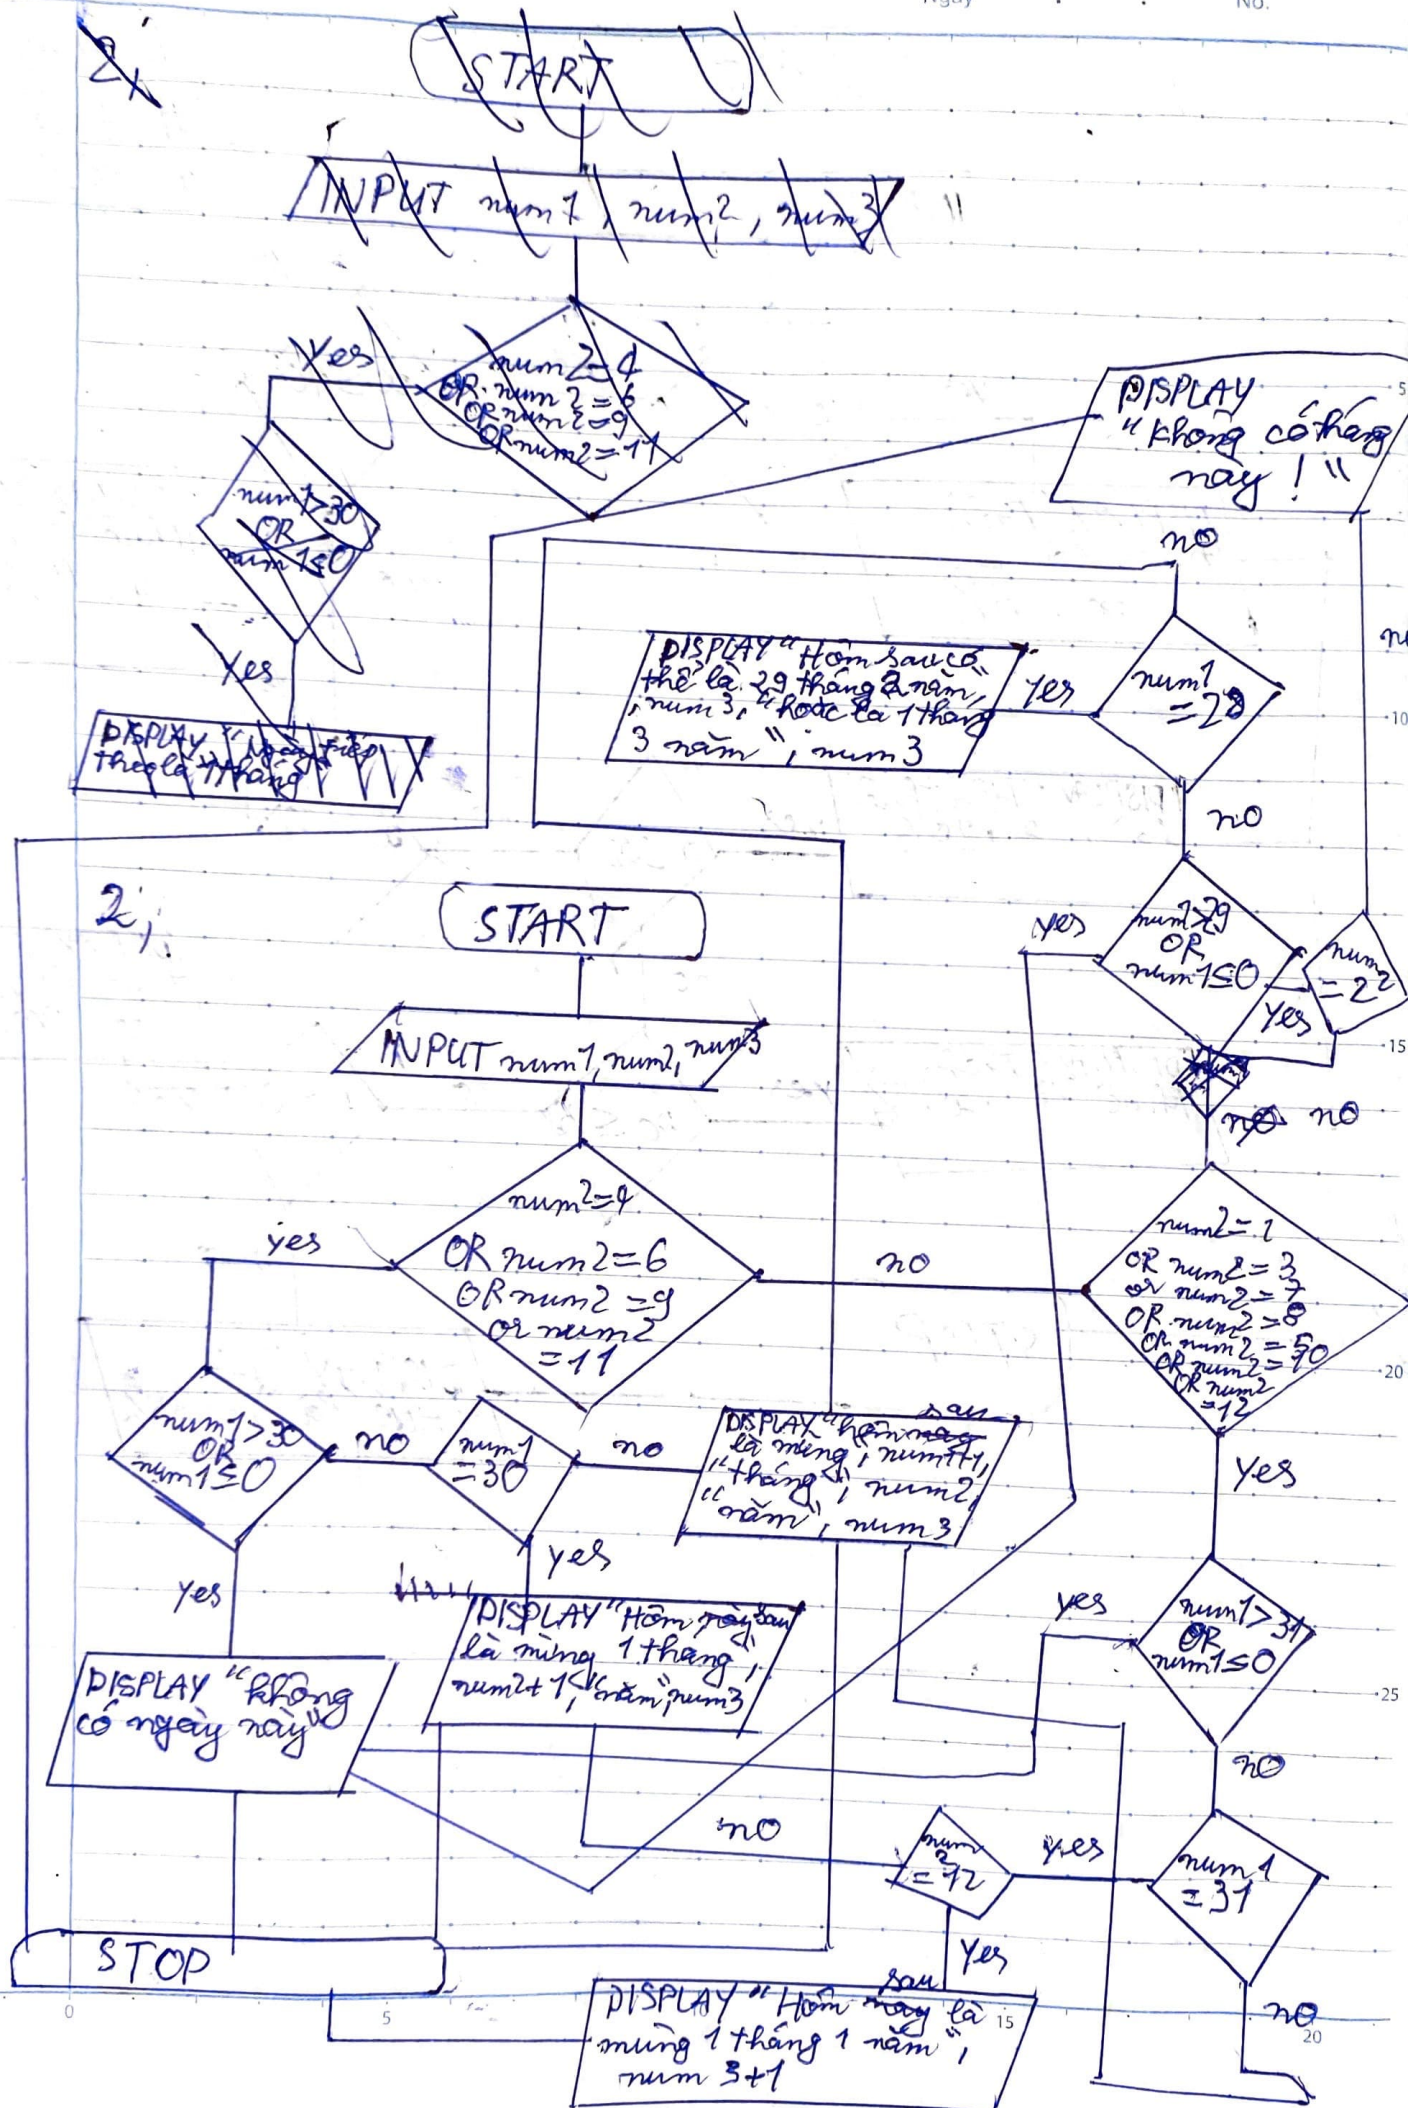 Ngày
No.
2,
START
INPUT num1, num2, num3
yes
num2=4
OR num2=6
OR num2=9
OR num2=11
num1>30
OR
num1≤0
Yes
DISPLAY "Ngày tiếp
theo là 1 tháng"
DISPLAY
"không có tháng
này!"
no
DISPLAY "Hôm sau có
thể là 29 tháng 2 năm"
, num3, "hoặc là 1 tháng
3 năm", num3
yes
num1
=28
no
num1>29
OR
num1≤0
yes
num2
=2
yes
no no
2,
START
INPUT num1, num2, num3
num2=4
OR num2=6
OR num2=9
or num2
=11
yes
no
num2=1
OR num2=3
or num2=7
OR num2=8
OR num2=5
OR num2=10
OR num2
=12
yes
num1>30
OR
num1≤0
no
num1
=30
no
DISPLAY "hôm nay sau
là mùng", num1+1,
"tháng", num2,
"năm", num3
yes
yes
DISPLAY "không
có ngày này"
DISPLAY "Hôm này sau
là mùng 1 tháng",
num2+1, "năm", num3
yes
num1>31
OR
num1≤0
no
no
num
2
=12
yes
num1
=31
Yes
no
STOP
DISPLAY "Hôm nay sau là
mùng 1 tháng 1 năm",
num3+1
5
10
15
20
25
0
5
15
20